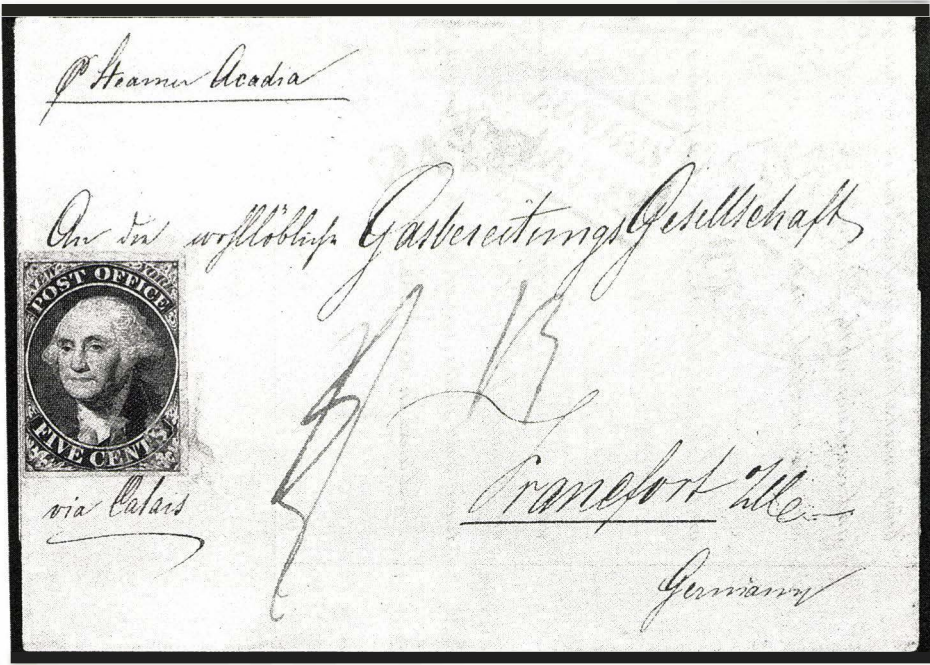 P Steamer Acadia
An die wohllöbliche Gasbereitungs Gesellschaft
NEW YORK
POST OFFICE
FIVE CENTS
via Calais
Francfort
Germany